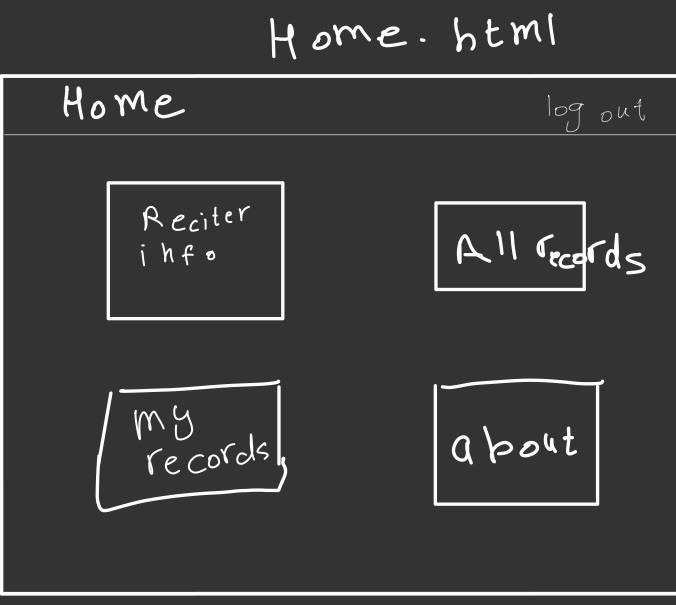 Home.html
Home
log out
Reciter
info
All records
my
records
about